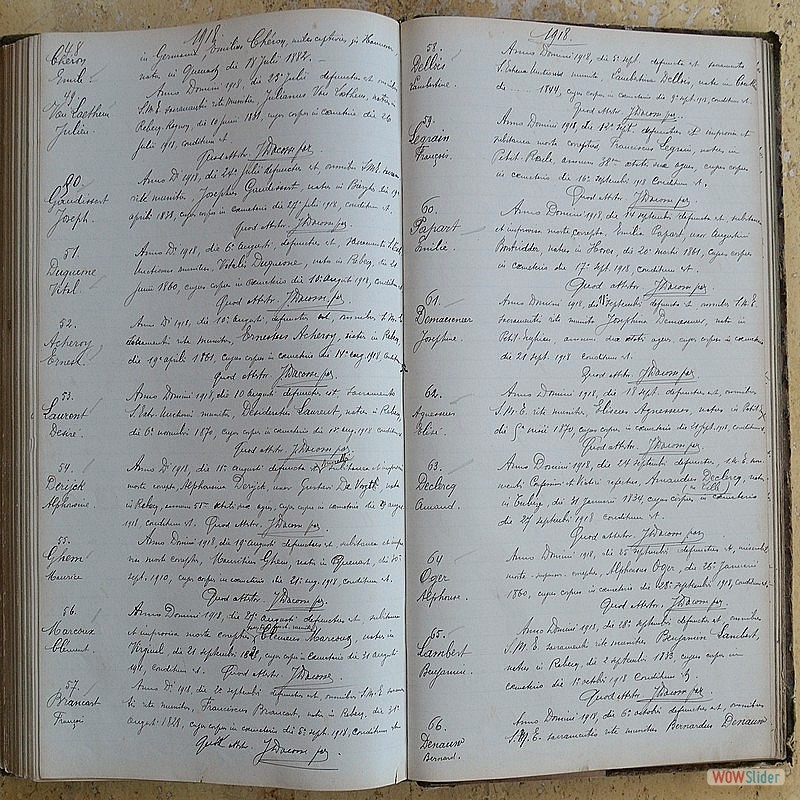 1918
48
Cheroy
Emile
in Germania, Emilius Cheroy, miles captivus, in Hannover,
natus in Quenast die 18 Julii 1882.
49
Van Caethem
Julien.
Anno Domini 1918, die 25 Julii defunctus et omnibus
S.M.E. sacramentis rite munitus Julianus Van Cathem, natus in
Rebecq-Rognon, die 10 junii 1881, cujus corpus in cæmeterio die 26
julii 1918, conditum est
Quod attestor. J Dacom par.
50
Gaudissert
Joseph.
Anno Dni 1918, die 24a julii defunctus est, omnibus S.M.E. sacram.
rite munitus, Josephus Gaudissert, natus in Bierghes die 19a
aprilis 1838, cujus corpus in cæmeterio die 27a julii 1918, conditum est.
Quod attestor. J Dacom par.
51.
Duquesne
Vital.
Anno Dni 1918, die 6a Augusti, defunctus est, sacramento S. Ext.
Unctionis munitus, Vitalis Duquesne, natus in Rebecq, die 20
junii 1860, cujus corpus in cæmeterio die 10a augusti 1918, conditum
Quod attestor. J Dacom par
52.
Acheroy
Ernest.
Anno Dni 1918, die 10a augusti defunctus est, omnibus S.M.E.
sacramentis rite munitus, Ernestus Acheroy, natus in Rebecq,
die 19a aprilis 1861, cujus corpus in cæmeterio die 14a aug. 1918, conditum
Quod attestor. J Dacom par.
53.
Laurent
Désiré.
Anno Domini 1918, die 10 augusti defunctus est, sacramento
S. Ext. Unctionis munitus, Desiderius Laurent, natus in Rebecq
die 6a novembris 1870, cujus corpus in cæmeterio die aug. 1918 conditum
Quod attestor. J Dacom par
54.
Derijck
Alphonsine.
Anno Dni 1918, die 15a augusti defuncta est subitanea et improvisa
morte correpta, Alphonsina Derijck, uxor Gustavi De Voght, nata
in Rebecq, annum 55um ætatis suæ agens, cujus corpus in cæmeterio die augusti
1918, conditum est. Quod attestor. J Dacom par.
55.
Ghem
Maurice
Anno Domini 1918, die 19a augusti defunctus est subitanea et improvi-
sa morte correptus, Mauritius Ghem, natus in Quenast, die 30a
sept. 1910, cujus corpus in cæmeterio die 21a aug. 1918, conditum est.
Quod attestor. J Dacom par.
56.
Marcoux
Clément.
Anno Domini 1918, die 29a augusti defunctus est, subitanea
et improvisa morte correptus Clemens Marcoux, natus in
Virginal, die 21 septembris, cujus corpus in cæmeterio die 31 augusti
1918, conditum est. Quod attestor. J Dacom
57.
Brancart
François
Anno Dni 1918, die 2a septembris defunctus est, omnibus S.M.E. sacramen-
tis rite munitus, Franciscus Brancart, natus in Rebecq, die 31a
augusti, cujus corpus in cæmeterio die 5a sept. 1918, conditum est
Quod attestor. J Dacom par.
1918.
58.
Delbois
Lambertine.
Anno Domini 1918, die 5a sept. defuncta est sacramento
S. Extremæ Unctionis munita, Lambertina Delbois, nata in
die ........ 1844, cujus corpus in cæmeterio die 9a sept. 1918, conditum est.
Quod attestor. J Dacom par.
59.
Legrain
François.
Anno Domini 1918, die 12a sept. defunctus est, improvisa et
subitanea morte correptus, Franciscus Legrain, natus in
Petit-Rœulx, annum 38um ætatis suæ agens, cujus corpus
in cæmeterio die 16a septembris 1918 conditum est.
Quod attestor. J Dacom par.
60.
Papart
Emilie.
Anno Domini 1918, die 14 septembris defuncta est, subitanea
et improvisa morte correpta, Emilia Papart, uxor Augustini
Bontridder, nata in Hoves, die 20a martii 1861, cujus corpus
in cæmeterio die 17a sept. 1918, conditum est.
Quod attestor. J Dacom par.
61
Demaseneer
Josephine.
Anno Domini 1918, die septembris defuncta est omnibus S.M.E.
sacramentis rite munita Josephina Demaseneer, nata in
Petit-Enghien, annum suæ ætatis agens, cujus corpus in cæmeterio
die 21 sept. 1918 conditum est.
Quod attestor. J Dacom par.
62.
Agnessens
Elisé.
Anno Domini 1918, die 18 sept. defunctus est, omnibus
S.M.E. rite munitus, Eliseus Agnessens, natus in Petit
die 5a maii 1870, cujus corpus in cæmeterio die 21 sept. 1918, conditum
Quod attestor. J Dacom par.
63.
Declercq
Amand.
Anno Domini 1918, die 24 septembris defunctus, S.M.E. sacra-
mentis refectus, Amandus Declercq, natus
in Tubeq, die 31 januarii 1834, cujus corpus in cæmeterio
die 27 septembris 1918 conditum est.
Quod attestor. J Dacom par.
64
Oger
Alphonse.
Anno Domini 1918, die 25a septembris defunctus est,
morte correptus, Alphonsus Oger, die 26a januarii
1860, cujus corpus in cæmeterio die 28a septembris 1918, conditum est.
Quod attestor. J Dacom par.
65.
Lambert
Benjamin.
Anno Domini 1918, die 28a septembris defunctus est, omnibus
S.M.E. sacramentis rite munitus Benjamin Lambert,
natus in Rebecq, die 2 septembris 1883, cujus corpus in
cæmeterio die 1a octobris 1918 conditum est.
Quod attestor. J Dacom par.
66.
Denauw
Bernard.
Anno Domini 1918, die 6a octobris defunctus est, omnibus
S.M.E. sacramentis rite munitus Bernardus Denauw
WOWSlider